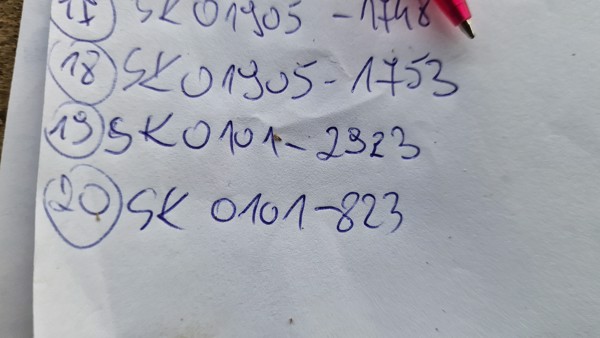 17 SK 01905 - 1748
18 SK 01905 - 1753
19 SK 0101 - 2923
20 SK 0101 - 823